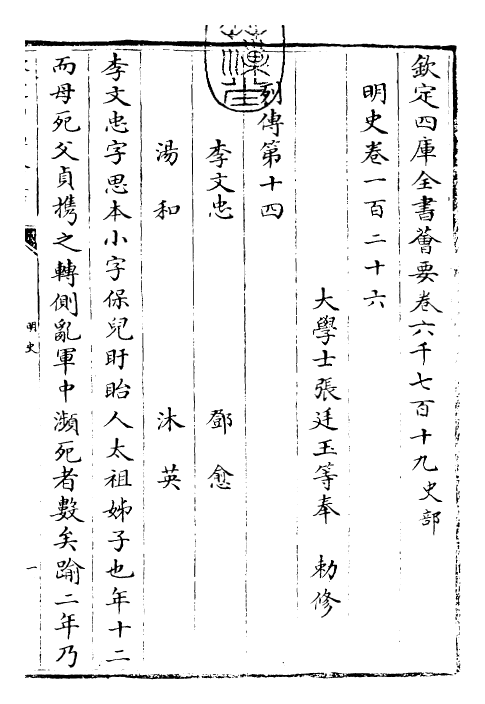 欽定四庫全書薈要卷六千七百十九史部
明史卷一百二十六
大學士張廷玉等奉 勅修
列傳第十四
李文忠 鄧愈
湯和 沐英
李文忠字思本小字保兒盱眙人太祖姊子也年十二
而母死父貞攜之轉側亂軍中瀕死者數矣踰二年乃
明史
一